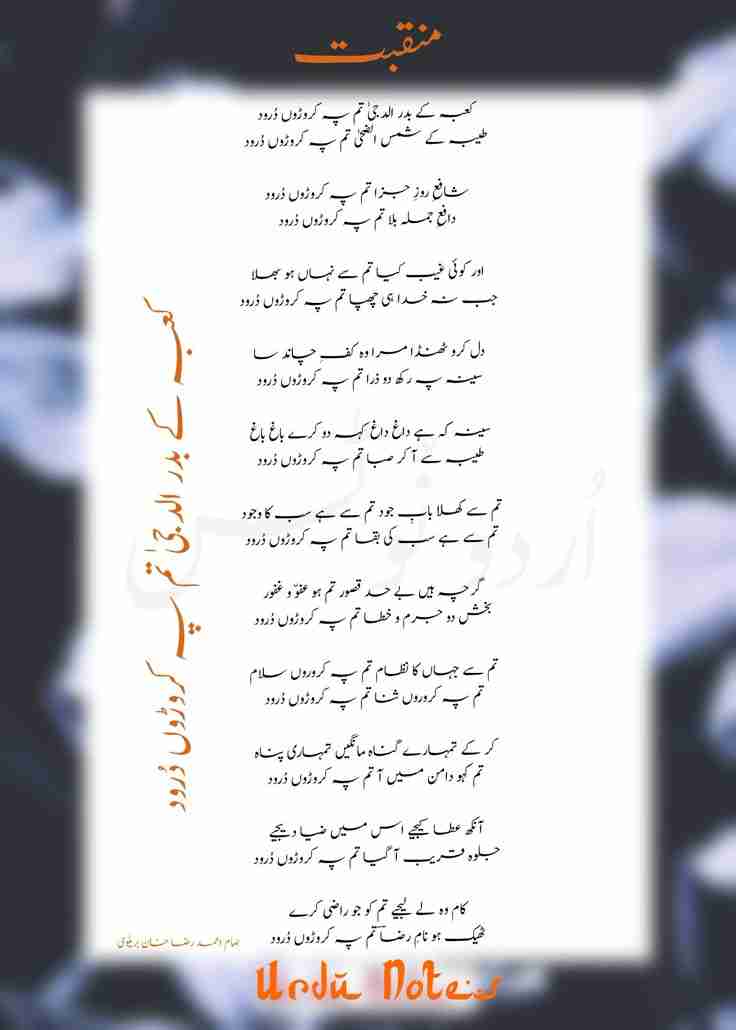 منقبت
کعبہ کے بدر الدجیٰ تم پہ کروڑوں دُرود
طیبہ کے شمس الضحیٰ تم پہ کروڑوں دُرود
شافعِ روزِ جزا تم پہ کروڑوں دُرود
دافعِ جملہ بلا تم پہ کروڑوں دُرود
اور کوئی غیب کیا تم سے نہاں ہو بھلا
جب نہ خدا ہی چھپا تم پہ کروڑوں دُرود
دل کرو ٹھنڈا مرا وہ کفِ چاند سا
سینہ پہ رکھ دو ذرا تم پہ کروڑوں دُرود
سینہ کہ ہے داغ داغ کہہ دو کرے باغ باغ
طیبہ سے آ کر صبا تم پہ کروڑوں دُرود
تم سے کھلا بابِ جود تم سے ہے سب کا وجود
تم سے ہے سب کی بقا تم پہ کروڑوں دُرود
گرچہ ہیں بے حد قصور تم ہو عفوّ و غفور
بخش دو جرم و خطا تم پہ کروڑوں دُرود
تم سے جہاں کا نظام تم پہ کروروں سلام
تم پہ کروروں ثنا تم پہ کروڑوں دُرود
کر کے تمہارے گناہ مانگیں تمہاری پناہ
تم کہو دامن میں آ تم پہ کروڑوں دُرود
آنکھ عطا کیجیے اس میں ضیا دیجیے
جلوہ قریب آ گیا تم پہ کروڑوں دُرود
کام وہ لے لیجیے تم کو جو راضی کرے
ٹھیک ہو نامِ رضاؔ تم پہ کروڑوں دُرود
امام احمد رضا خان بریلوی
کعبہ کے بدر الدجیٰ تم پہ کروڑوں دُرود
اُردو نوٹس
Urdu Notes